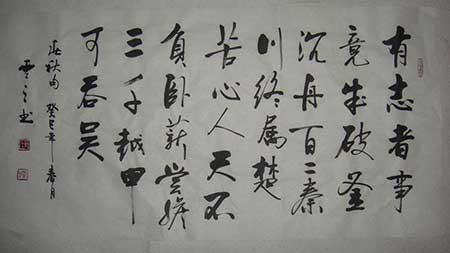 有志者事
竟成破釜
沉舟百二秦
川終属楚
苦心人天不
負卧薪嘗膽
三千越甲
可吞吴
秋句 癸巳年春月